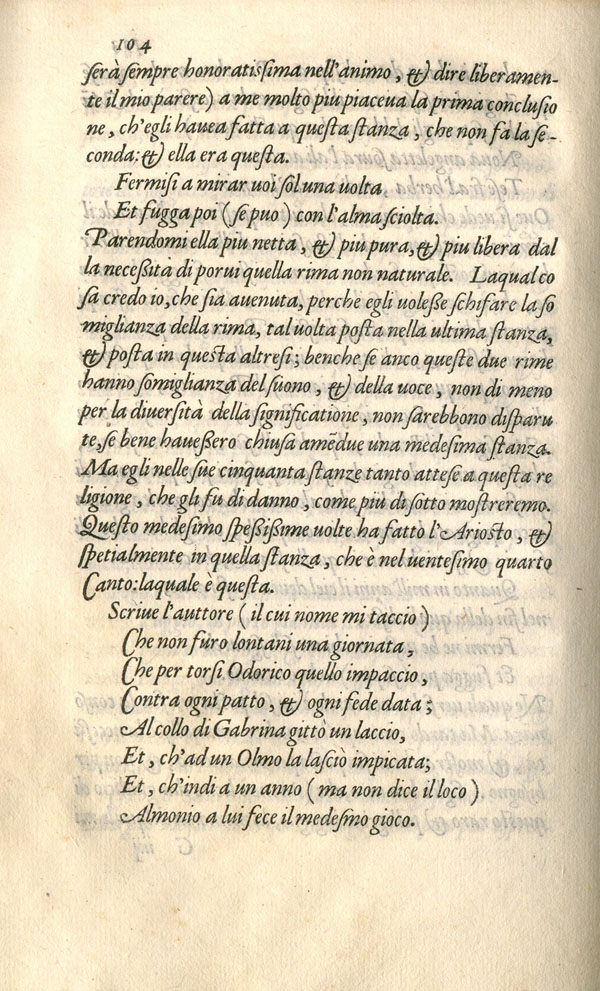 104
serà sempre honoratissima nell'animo, & dire liberamen-
te il mio parere) a me molto piu piaceua la prima conclusio
ne, ch'egli hauea fatta a questa stanza, che non fà la se-
conda: & ella era questa.
Fermisi a mirar uoi sol una uolta,
Et fugga poi (se puo) con l'alma sciolta.
Parendomi ella piu netta, & piu pura, & piu libera dal
la necessità di porui quella rima non naturale. Laqual co
sa credo io, che sia auenuta, perche egli uolesse schifare la so
miglianza della rima, tal uolta posta nella ultima stanza,
& posta in questa altresi; benche se anco queste due rime
hanno somiglianza del suono, & della uoce, non di meno
per la diuersità della significatione, non sarebbono disparu
te, se bene hauessero chiusa amẽdue una medesima stãza.
Ma egli nelle sue cinquanta stanze tanto attese a questa re
ligione, che gli fu di danno, come piu di sotto mostreremo.
Questo medesimo spessissime uolte ha fatto l'Ariosto, &
spetialmente in quella stanza, che è nel uentesimo quarto
Canto: laquale è questa.
Scriue l'auttore (il cui nome mi taccio)
Che non furo lontani una giornata,
Che per torsi Odorico quello impaccio,
Contra ogni patto, & ogni fede data;
Al collo di Gabrina gittò un laccio,
Et, ch'ad un Olmo la lasciò impicata;
Et, ch'indi a un anno (ma non dice il loco)
Almonio a lui fece il medesmo gioco.